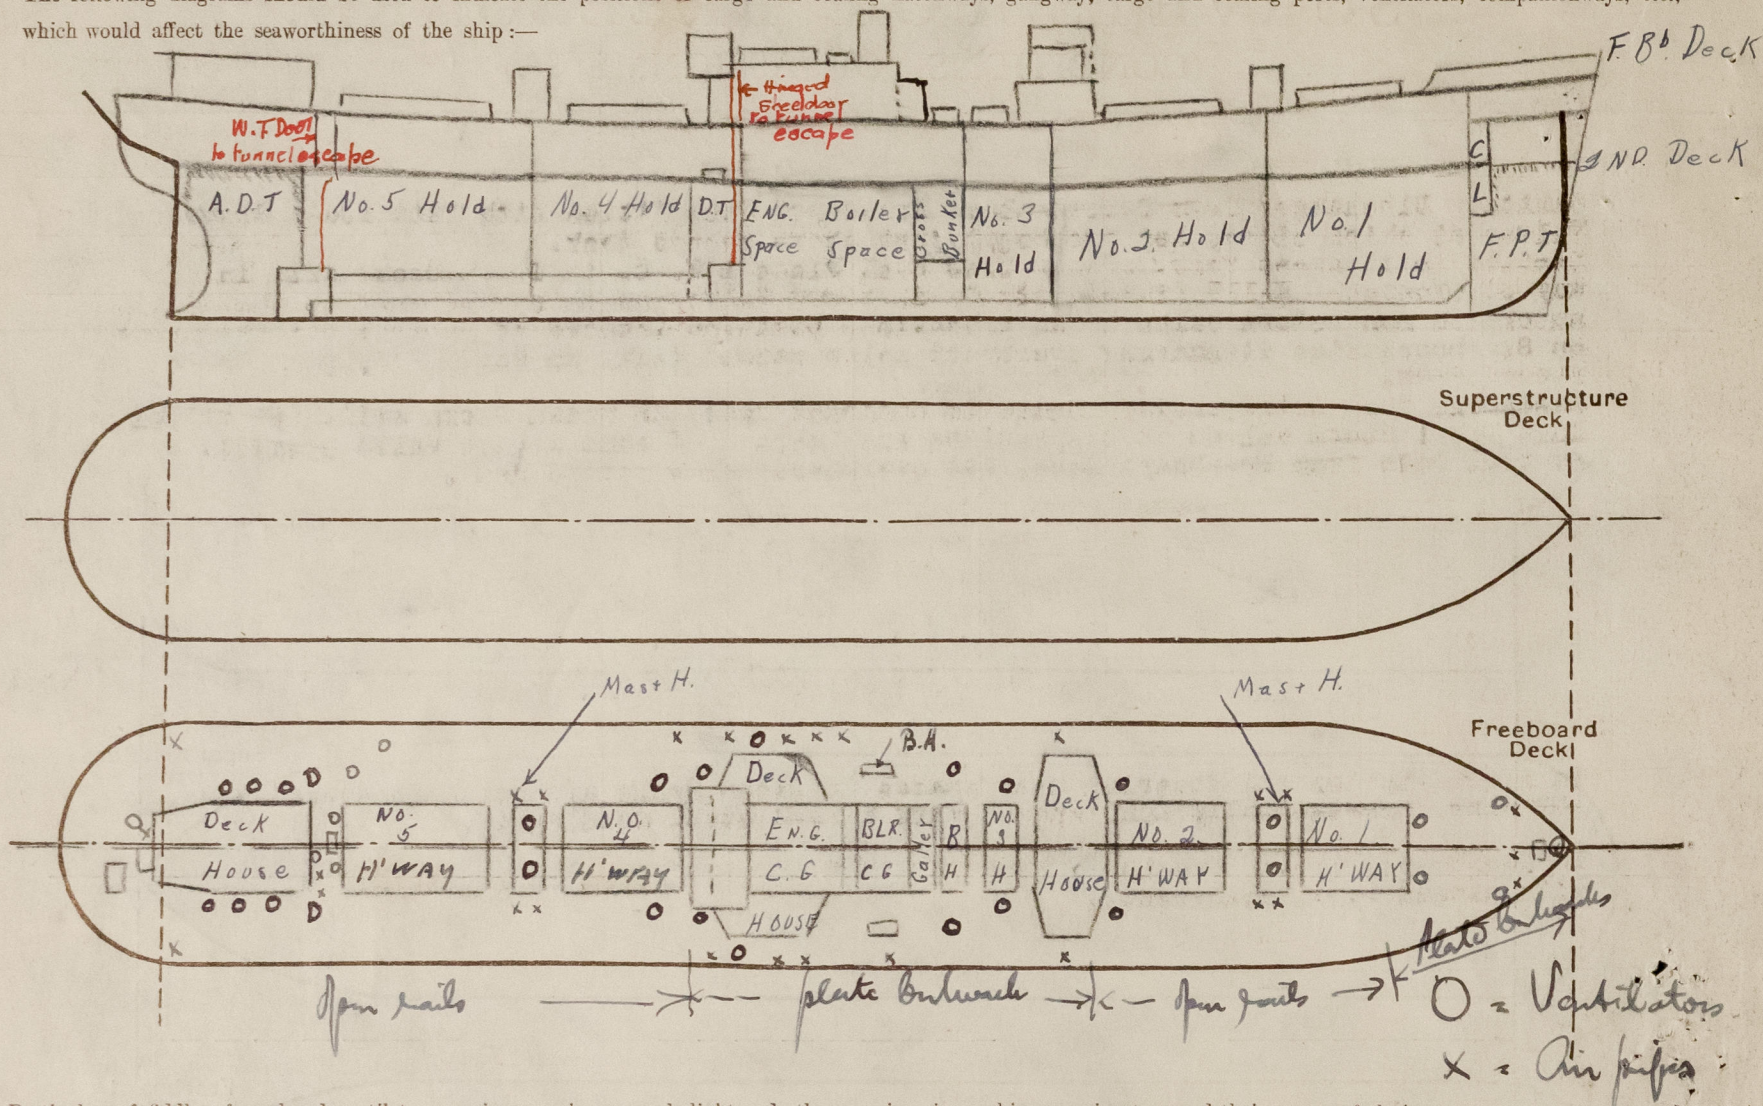 which would affect the seaworthiness of the ship :—
F. Bd. Deck
Hinged
Steel door
to tunnel
escape
W.T. Door
to tunnel escape
2ND. Deck
A.D.T
No. 5 Hold
No. 4 Hold
D.T
ENG.
Space
Boiler
Space
Cross
Bunker
No. 3
Hold
No. 2. Hold
No. 1
Hold
C
L
F.P.T
Superstructure
Deck
Mast H.
Mast H.
Freeboard
Deck
B.H.
Deck
House
No.
5
H'WAY
N.O.
4
H'WAY
Deck
ENG.
C.G
HOUSE
BLR.
CG
Galley
B
H
No.
3
H
Deck
House
No. 2
H'WAY
No. 1
H'WAY
Plate Bulwarks
Open rails
plate Bulwark
Open rails
O = Ventilators
x = Air pipes